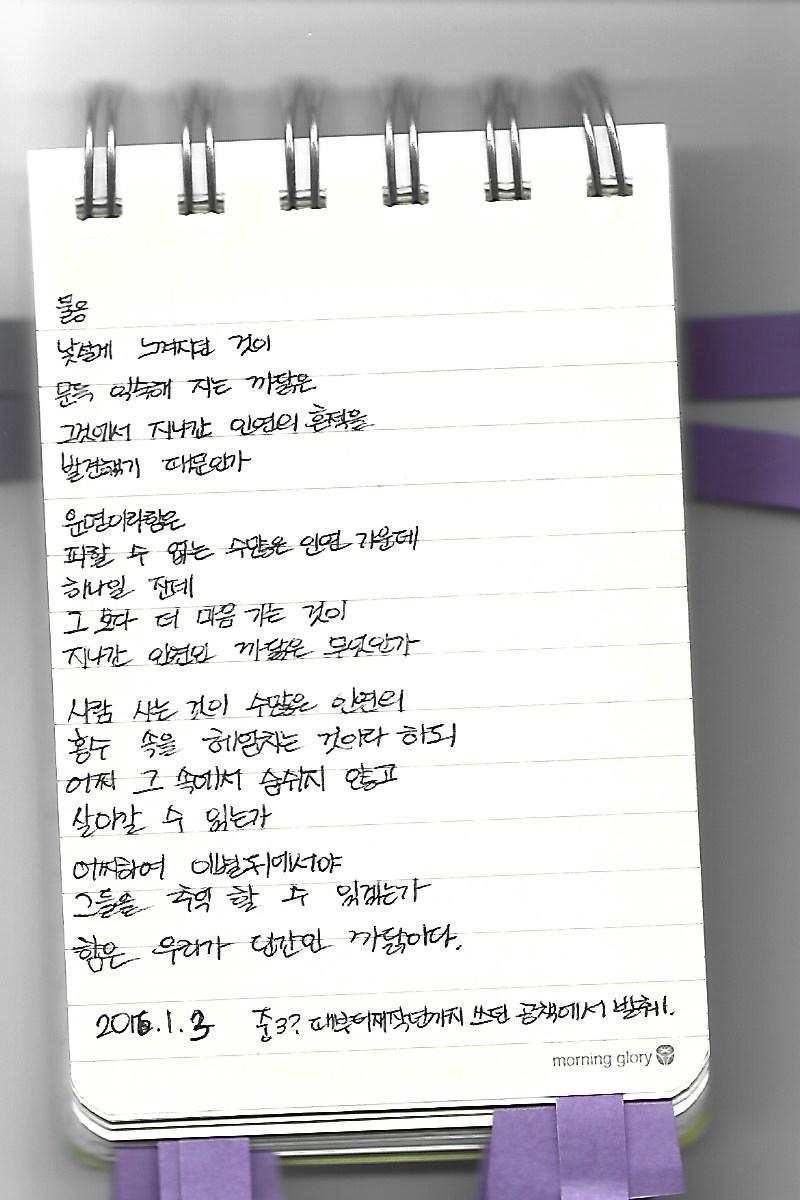 물음
낯설게 느껴지던 것이
문득 익숙해 지는 까닭은
그것에서 지나간 인연의 흔적을
발견했기 때문인가
운명이라함은
피할 수 없는 수많은 인연 가운데
하나일 진데
그 보다 더 마음 가는 것이
지나간 인연인 까닭은 무엇인가
사람 사는 것이 수많은 인연의
홍수 속을 헤엄치는 것이라 하되
어찌 그 속에서 숨쉬지 않고
살아갈 수 있는가
어찌하여 이별뒤에서야
그들을 추억 할 수 있겠는가
함은 우리가 인간인 까닭이다.
2016.1.3 중3? 때부터재작년까지 쓰던 공책에서 발췌.
morning glory